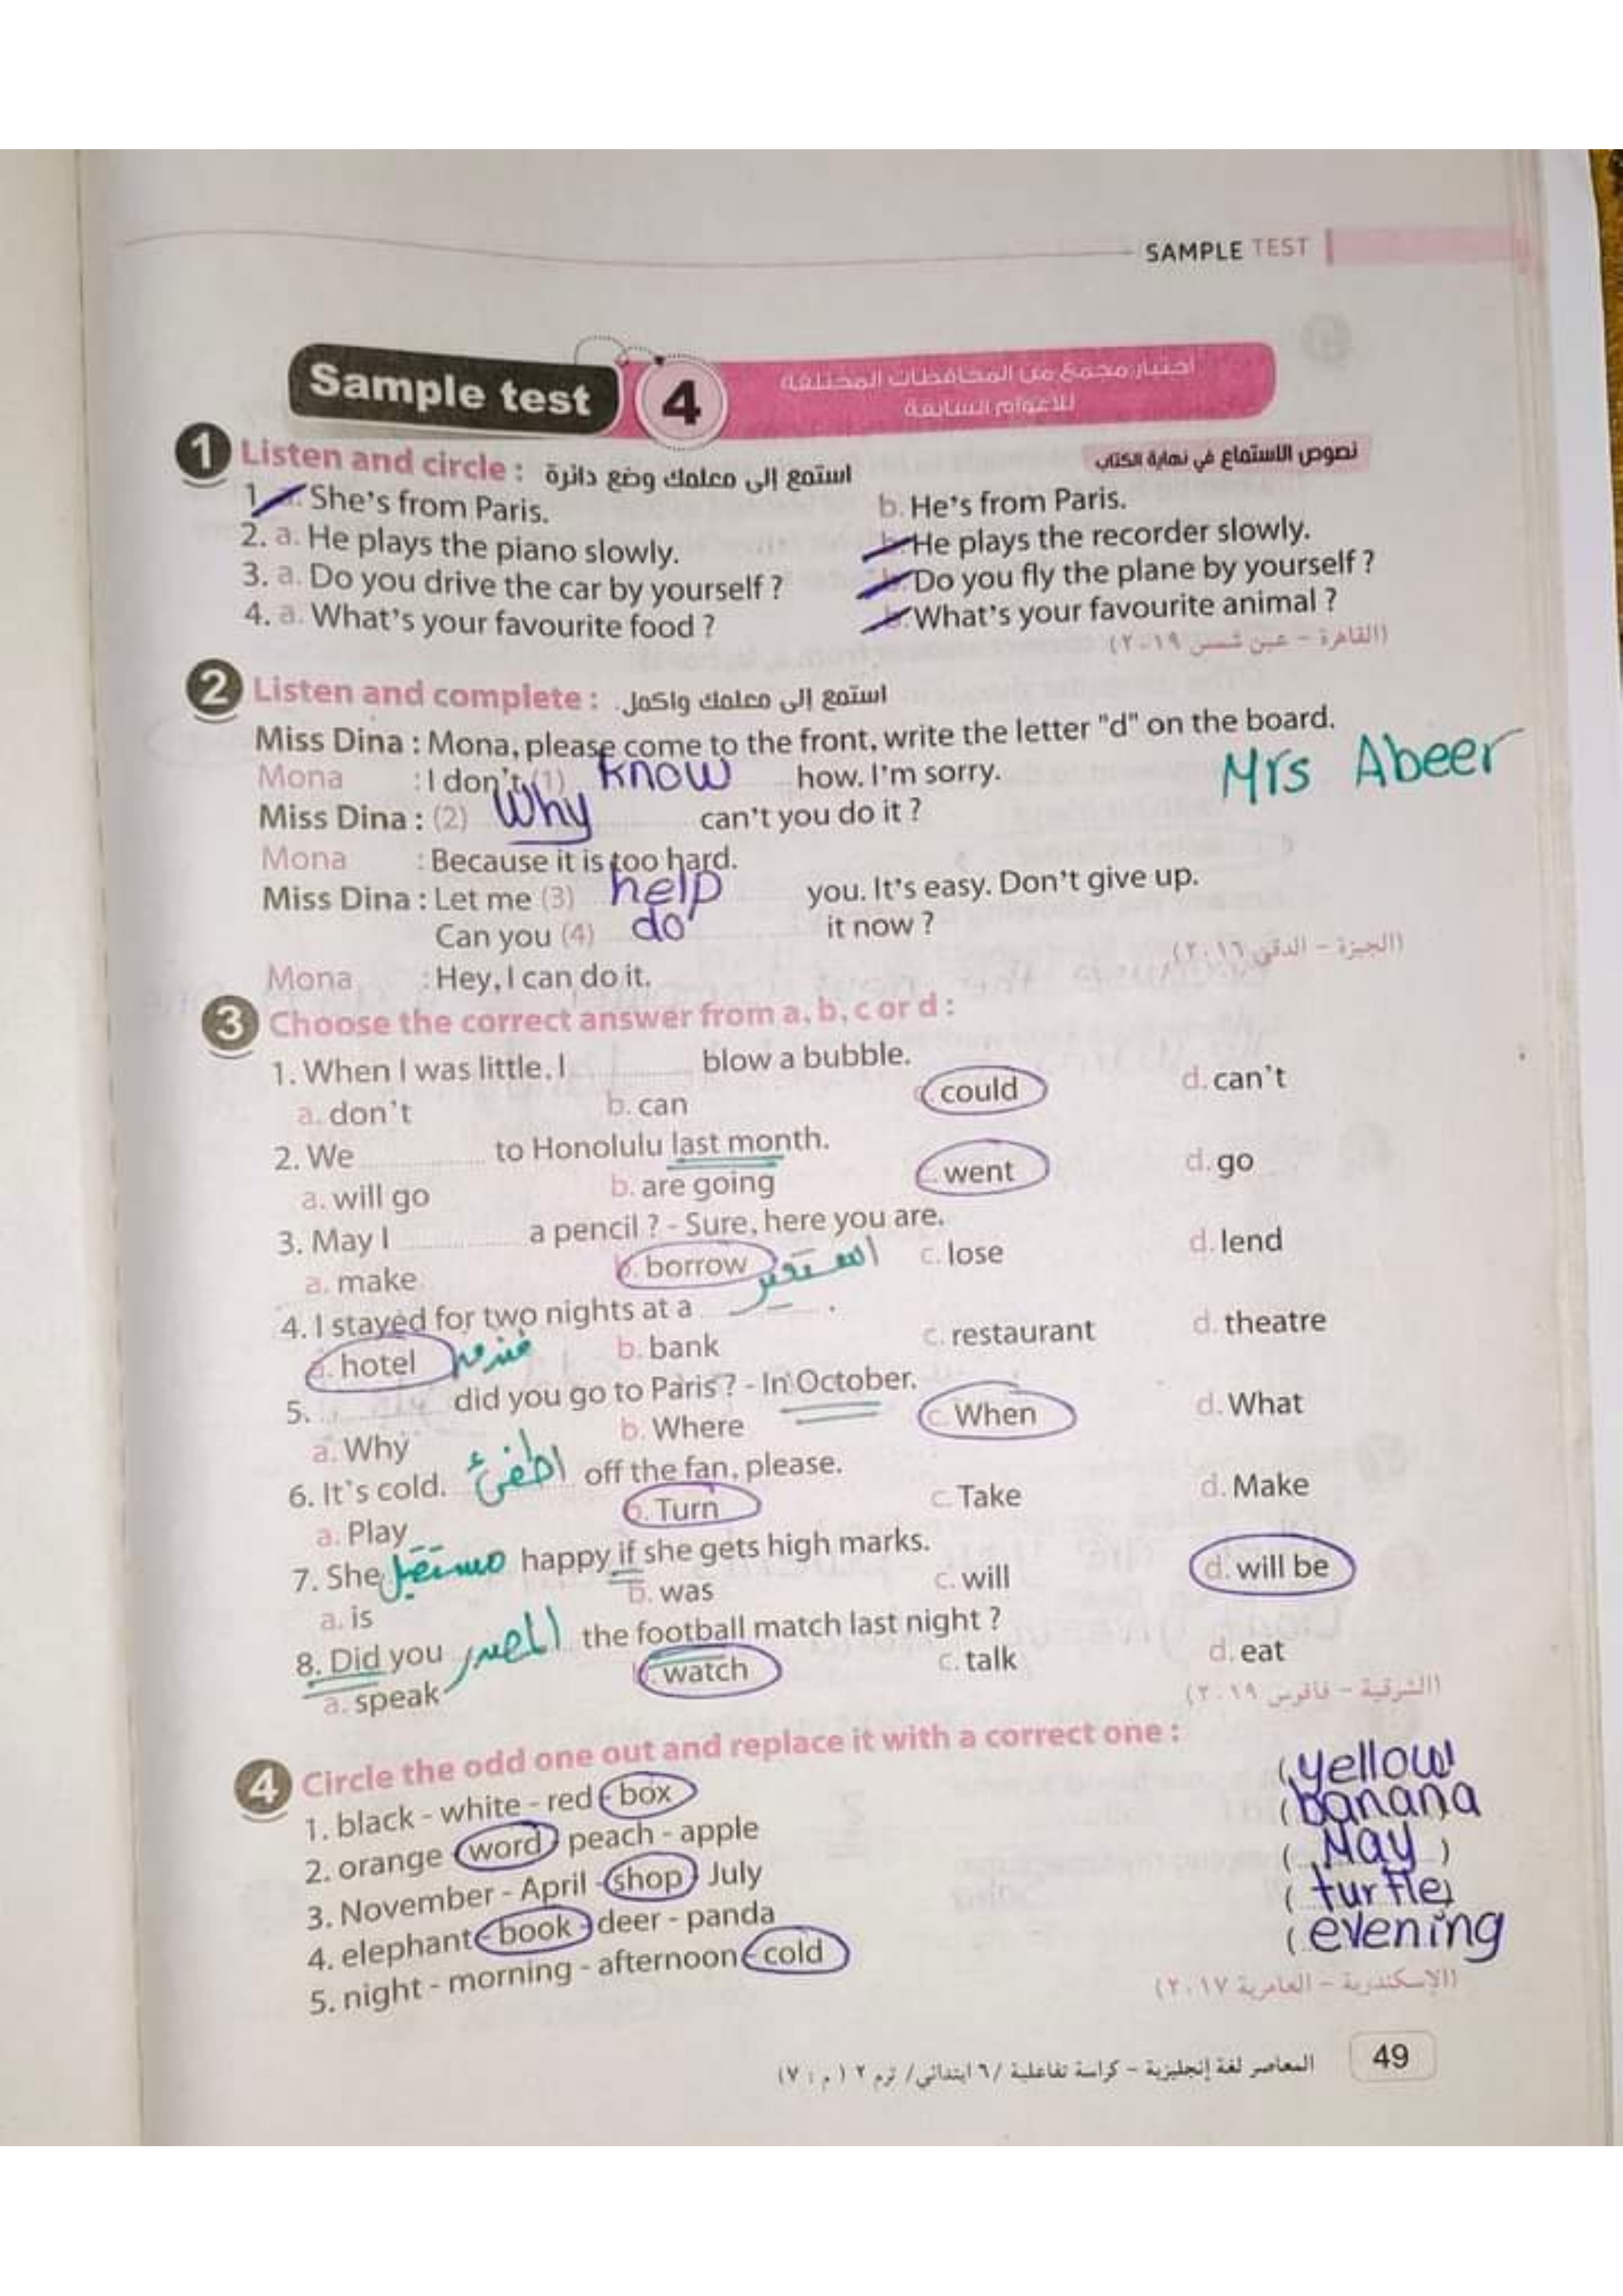 SAMPLE TEST
Sample test 4 اختبار مجمع من المحافظات المختلفة
للأعوام السابقة
1 Listen and circle : استمع إلى معلمك وضع دائرة نصوص الاستماع في نهاية الكتاب
1. She's from Paris. b. He's from Paris.
2. a. He plays the piano slowly. He plays the recorder slowly.
3. a. Do you drive the car by yourself ? Do you fly the plane by yourself ?
4. a. What's your favourite food ? What's your favourite animal ?
(القاهرة - عين شمس ٢٠١٩)
2 Listen and complete : استمع إلى معلمك واكمل.
Miss Dina : Mona, please come to the front, write the letter "d" on the board.
Mona : I don't (1) know how. I'm sorry. Mrs Abeer
Miss Dina : (2) Why can't you do it ?
Mona : Because it is too hard.
Miss Dina : Let me (3) help you. It's easy. Don't give up.
Can you (4) do it now ?
(الجيزة - الدقي ٢٠١٦)
Mona : Hey, I can do it.
3 Choose the correct answer from a, b, c or d :
1. When I was little, I ............ blow a bubble.
a. don't b. can c. could d. can't
2. We ............ to Honolulu last month.
a. will go b. are going went d. go
3. May I ............ a pencil ? - Sure, here you are.
a. make b. borrow استعير c. lose d. lend
4. I stayed for two nights at a ............ .
a. hotel b. bank c. restaurant d. theatre
5. ............ did you go to Paris ? - In October.
a. Why b. Where c. When d. What
6. It's cold. اطفئ off the fan, please.
a. Play b. Turn c. Take d. Make
7. She مستقبل happy if she gets high marks.
a. is b. was c. will d. will be
8. Did you المصدر the football match last night ?
a. speak b. watch c. talk d. eat
(الشرقية - فاقوس ٢٠١٩)
4 Circle the odd one out and replace it with a correct one :
1. black - white - red - box ( yellow
2. orange word - peach - apple ( banana
3. November - April - shop - July ( May )
4. elephant - book - deer - panda ( turtle)
5. night - morning - afternoon - cold ( evening
(الإسكندرية - العامرية ٢٠١٧)
المعاصر لغة إنجليزية - كراسة تفاعلية /٦ ابتدائي/ ترم ٢ (م : ٧) 49